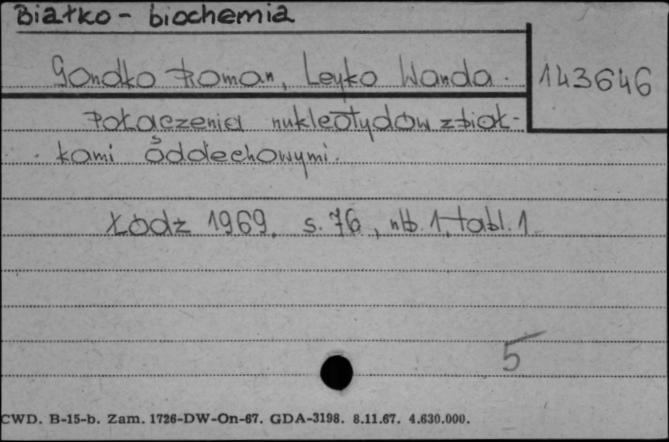 Białko - biochemia
Gondko Roman, Leyko Wanda.
143646
Połączenia nukleotydów z biał-
kami oddechowymi.
Łódź 1969, s. 76, nlb. 1, tabl. 1
5
CWD. B-15-b. Zam. 1726-DW-On-67. GDA-3198. 8.11.67. 4.630.000.